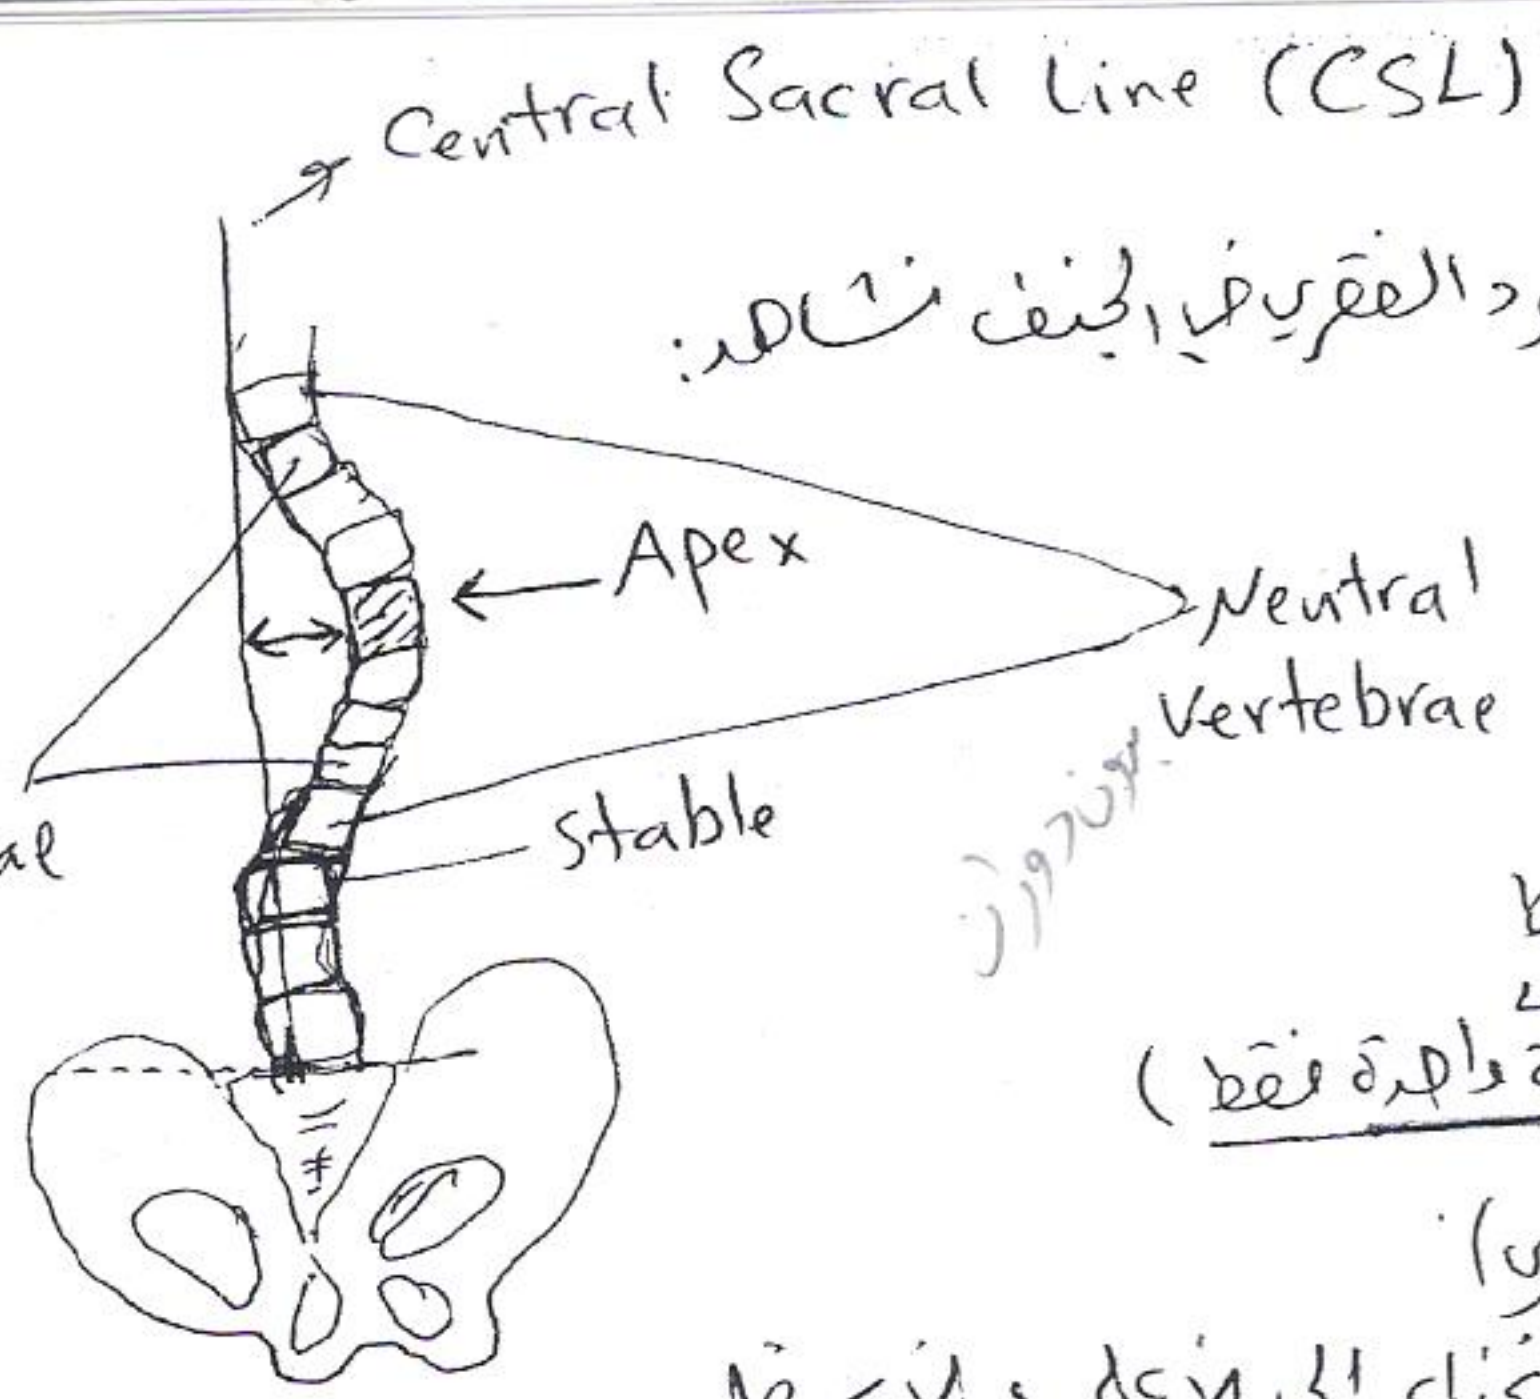 Central Sacral Line (CSL)
الفقري في الجنف نشاهد:
Apex
Neutral
vertebrae
Stable
بدون دوران
واحدة فقط )